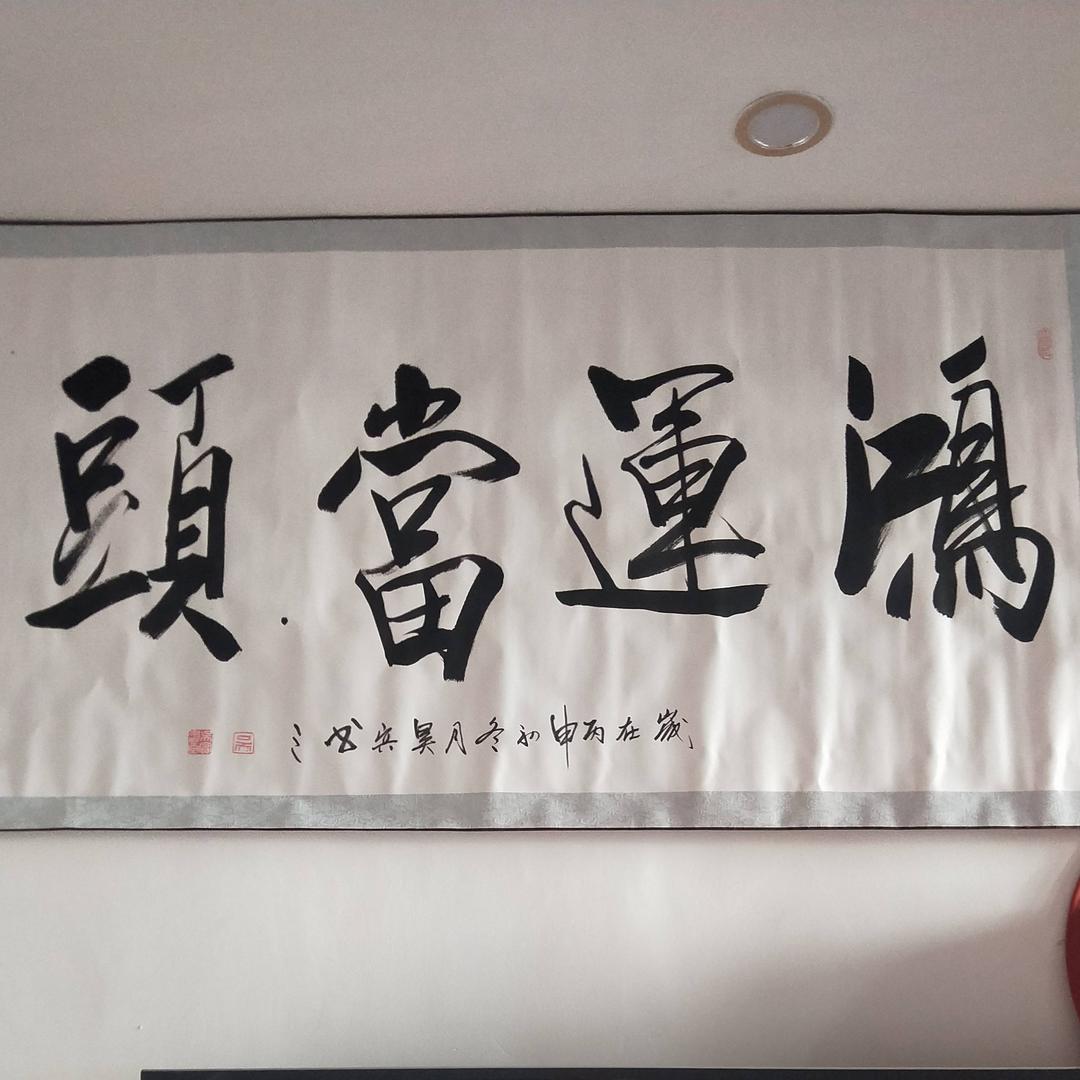 鴻運當頭
歲在丙申初冬月吴兵书之